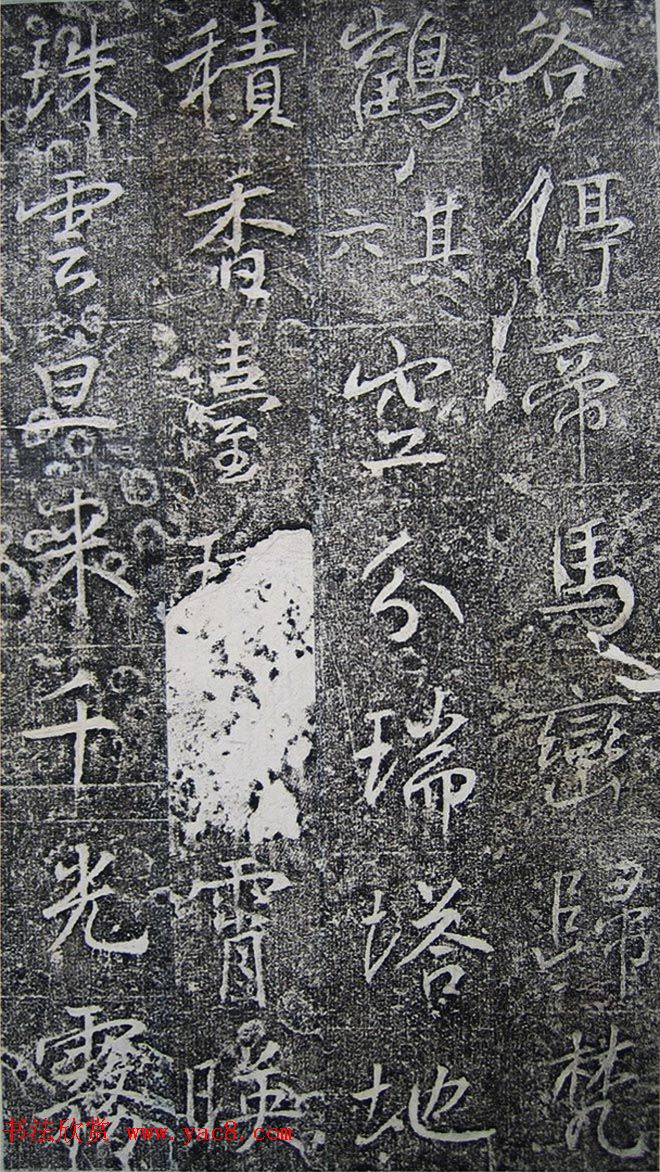 谷停帝馬巒歸梵
鶴其六空分瑞塔地
積香臺霄暎
珠雲旦来千光霧
书法欣赏 www.yac8.com